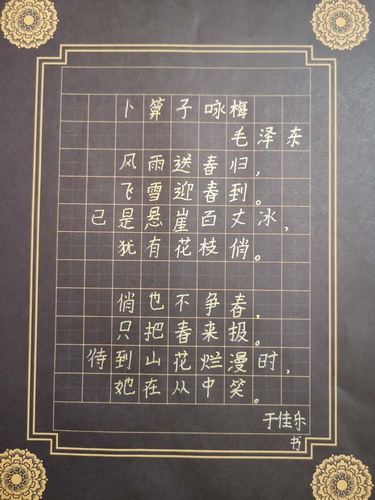 卜算子咏梅
毛泽东
风雨送春归，
飞雪迎春到。
已是悬崖百丈冰，
犹有花枝俏。
俏也不争春，
只把春来报。
待到山花烂漫时，
她在丛中笑。
于佳乐
书